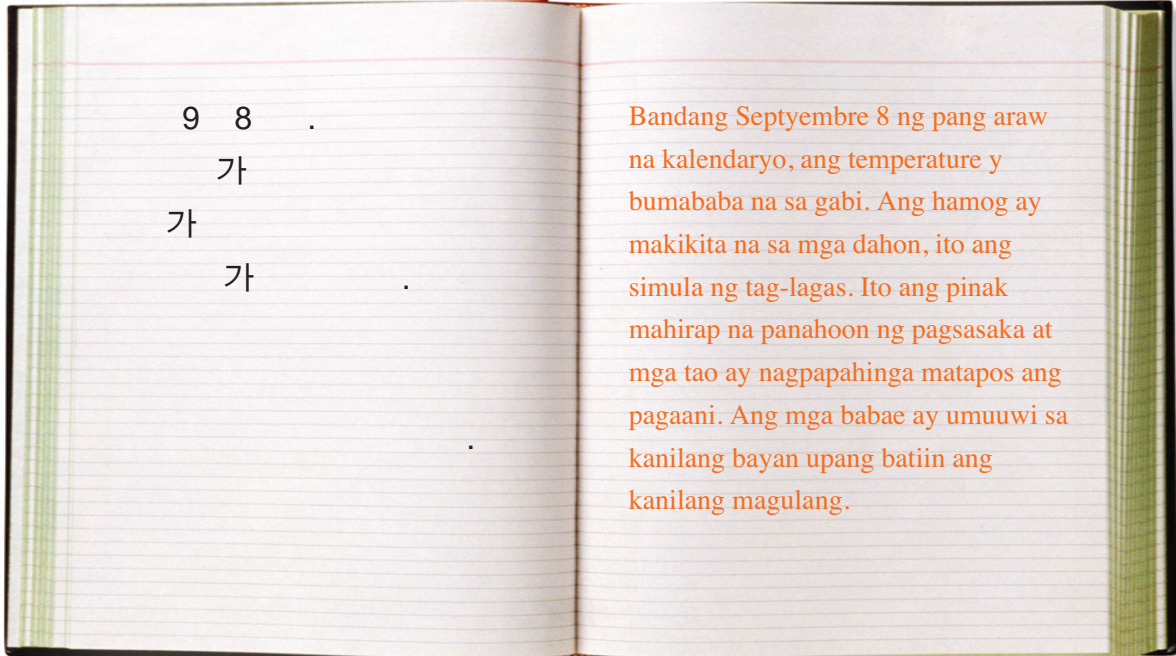 9 8 .
가
가
가 .
.
Bandang Septyembre 8 ng pang araw
na kalendaryo, ang temperature y
bumababa na sa gabi. Ang hamog ay
makikita na sa mga dahon, ito ang
simula ng tag-lagas. Ito ang pinak
mahirap na panahoon ng pagsasaka at
mga tao ay nagpapahinga matapos ang
pagaani. Ang mga babae ay umuuwi sa
kanilang bayan upang batiin ang
kanilang magulang.